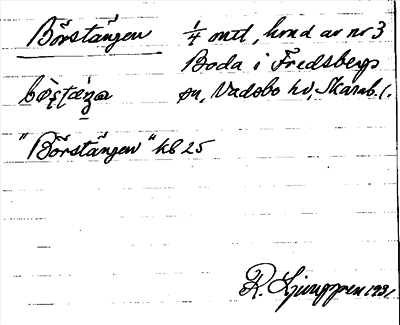 Börstängen ¼ mtl, hmd av nr 3
Boda i Fredsbergs
sn, Vadsbo hd, Skarab. l.
"Börstängen" kB 25
R. Ljunggren 1931.